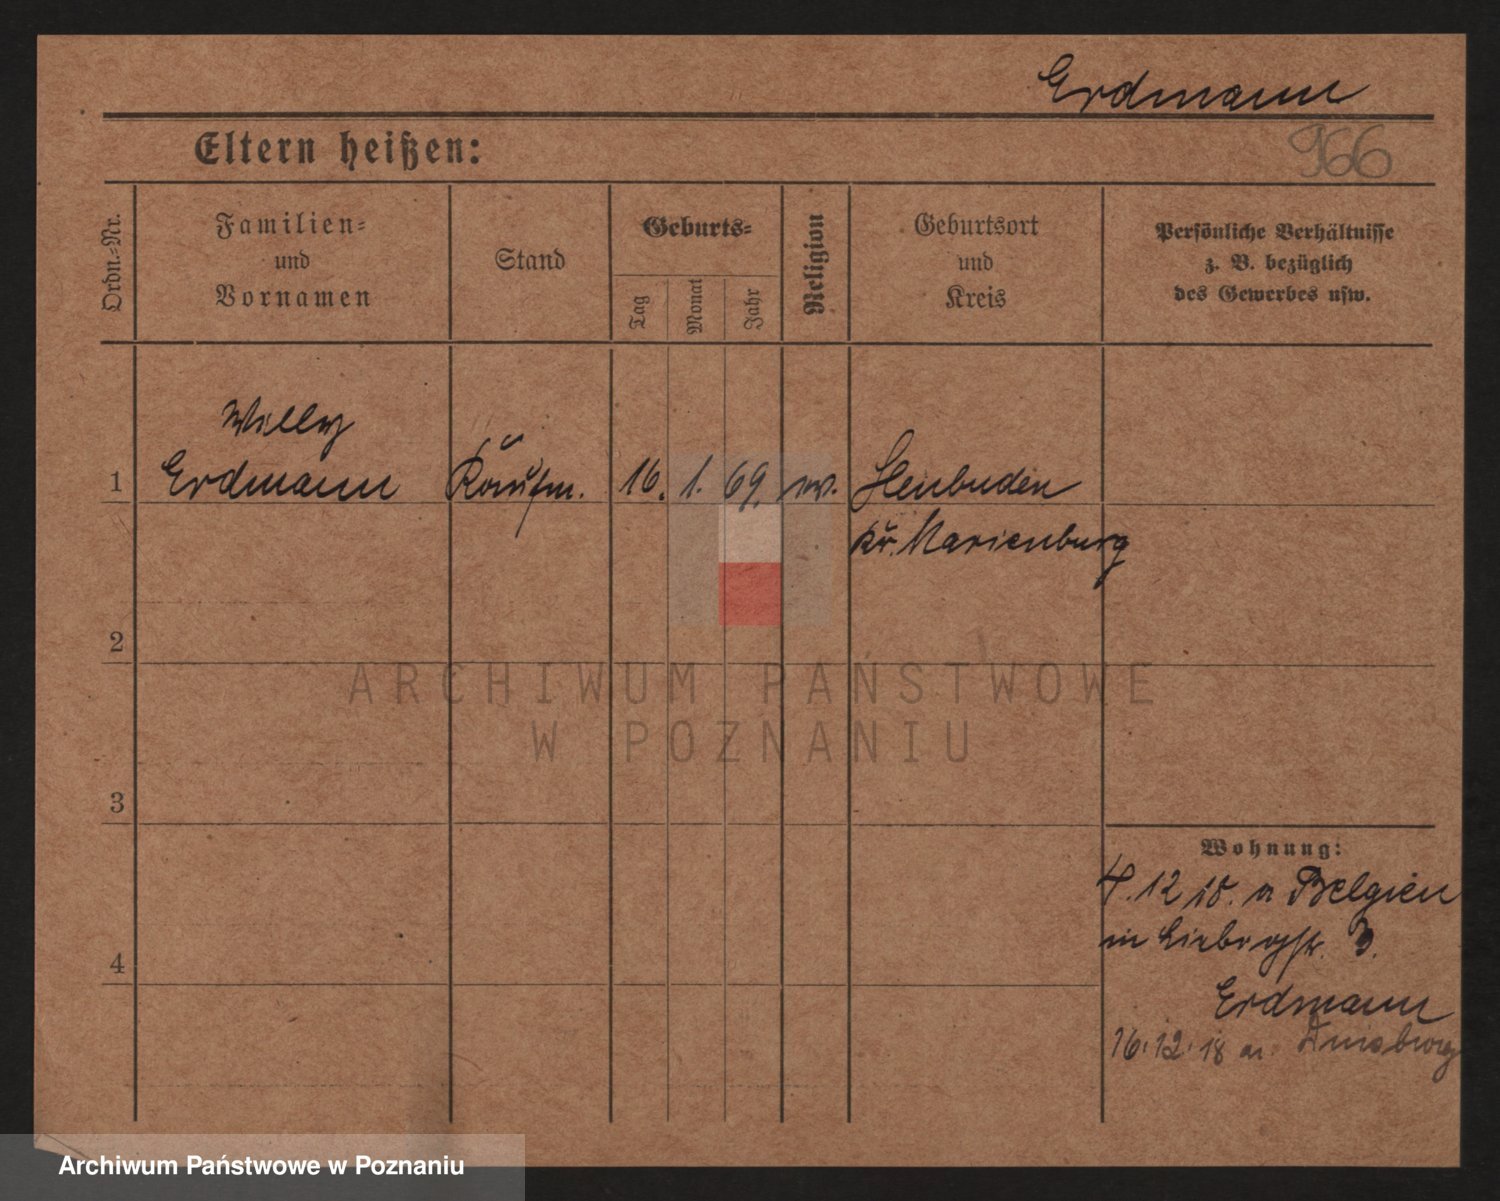 Erdmann
Eltern heißen:
966
Ordn.-Nr.
Familien-
und
Vornamen
Stand
Geburts-
Tag
Monat
Jahr
Religion
Geburtsort
und
Kreis
Persönliche Verhältnisse
z. B. bezüglich
des Gewerbes usw.
Willy
1 Erdmann Kaufm. 16. 1. 69. ev.
Kr. Marienburg
2
ARCHIWUM PAŃSTWOWE
W POZNANIU
3
Wohnung:
4.12 18. v Belgien
4
Erdmann
16.12.18 a. Duisburg
Archiwum Państwowe w Poznaniu